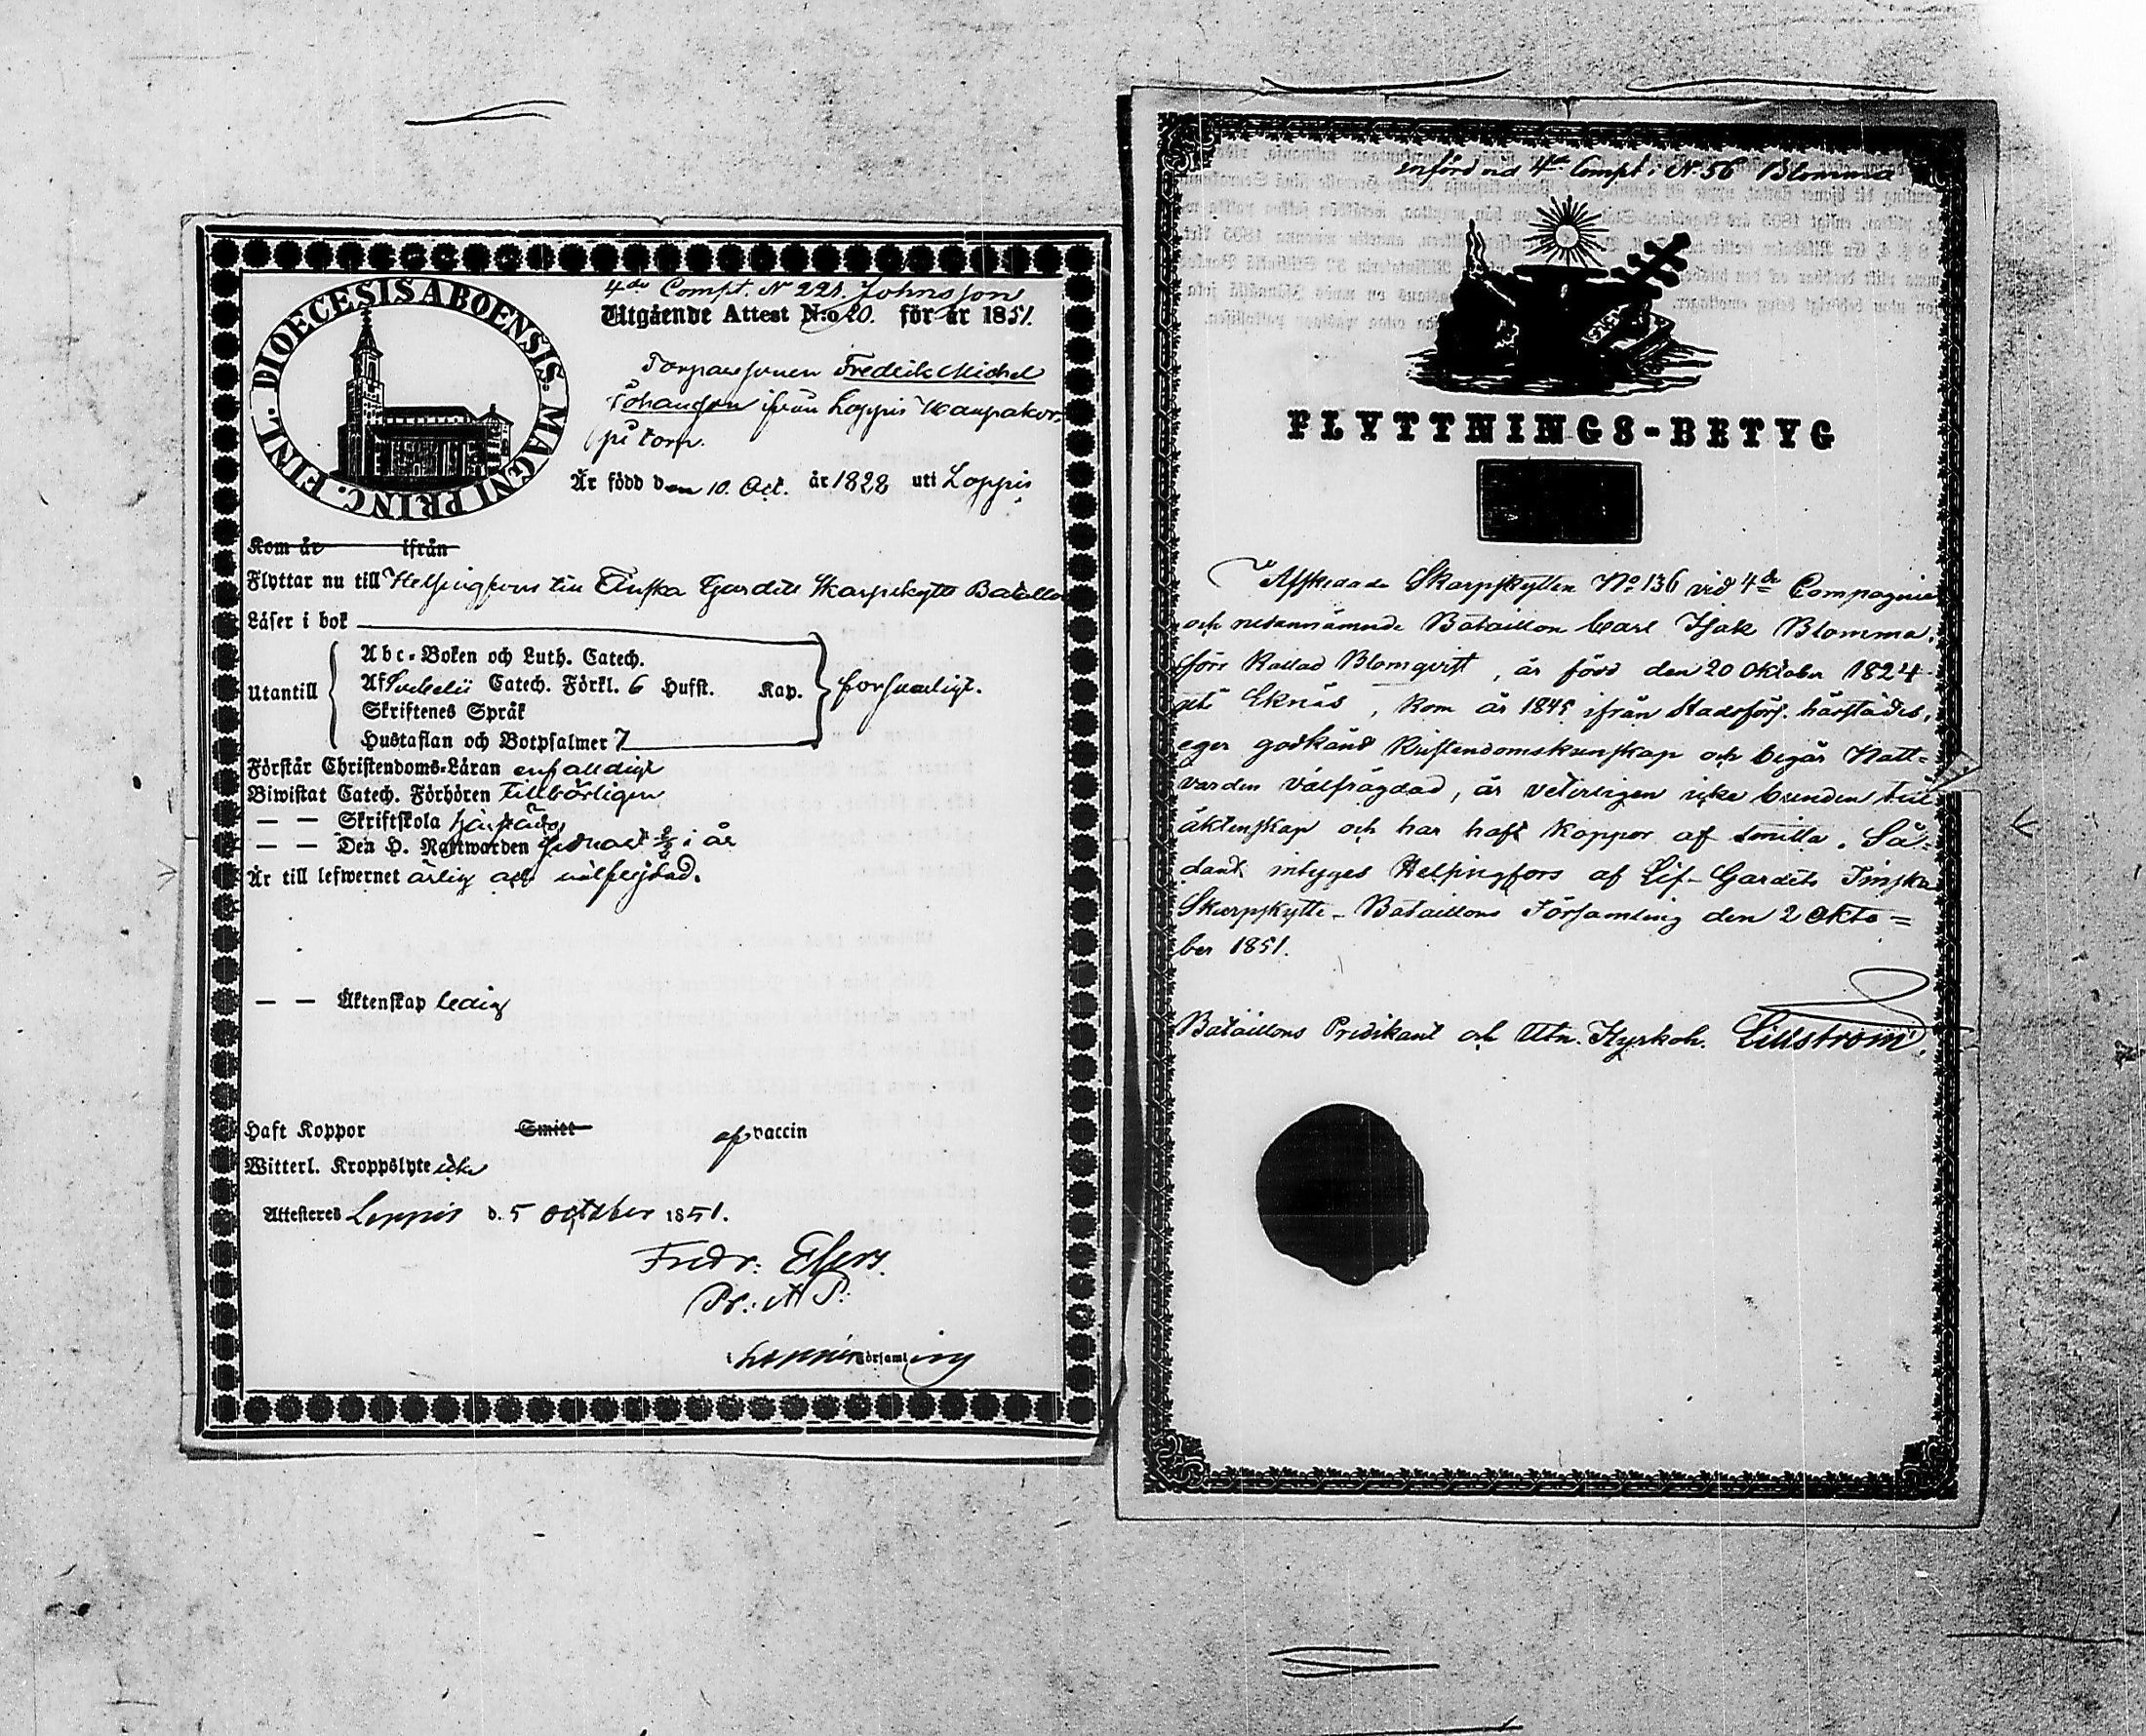 4de Compt. N 221. Johnsson
DIOECESIS ABOENSIS. MAGNI PRINC. FINL.
Utgående Attest N:o 20. för år 1851.
Torparesonen Fredrik Michel
Johansson ifrån Loppis
torp.
Är född den 10. Oct. år 1828 uti Loppis
Kom år ifrån
Flyttar nu till Helsingfors till Finska Gardets Skarpskytte Bataillon
Läser i bok
Utantill
Abc-Boken och Luth. Catech.
Af Svebelii Catech. Förkl. 6 Hufst. Kap.
Skriftenes Språk
Hustaflan och Botpsalmer 7
försvarligt.
Förstår Christendoms-Läran enfalldigt
Biwistat Catech. Förhören tillbörligen
— — Skriftskola
— — Den H. Nattwarden sednast i år
Är till lefwernet ärlig och välfrejdad.
— — Äktenskap ledig
Haft Koppor Smitt af vaccin
Witterl. Kroppslyte icke
Attesteras Loppis d. 5 october 1851.
Fredr:
i Loppis Församling
införd vid 4de Compt: N. 56 Blomma
FLYTTNINGS-BETYG
Afskedade Skarpskytten No 136 vid 4de Compagnie
och nedannämnde Bataillon Carl Isak Blomma,
förr kallad Blomqvist, är född den 20 Oktober 1824
uti Eknäs, kom år 1845 ifrån Stadsförs. härstädes,
eger godkänd Kristendomskunskap och begår Natt-
varden välfrägdad, är veterligen icke bunden till
äktenskap och har haft koppor af smitta. Så-
dant intygas Helsingfors af Lif-Gardets Finska
Skarpskytte-Bataillons Församling den 2 Okto=
ber 1851.
Bataillons Predikant och Utn. Kyrkoh. Lillström.